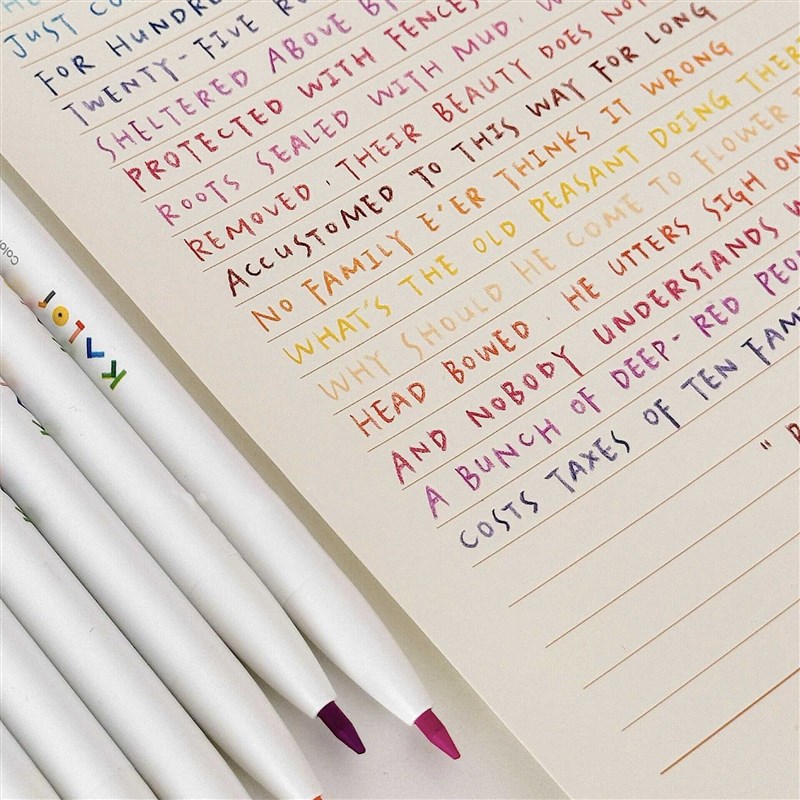 JUST CO
FOR HUNDRE
TWENTY-FIVE R
SHELTERED ABOVE B
PROTECTED WITH FENCES
ROOTS SEALED WITH MUD, W
REMOVED, THEIR BEAUTY DOES NO
ACCUSTOMED TO THIS WAY FOR LONG
NO FAMILY E'ER THINKS IT WRONG
WHAT'S THE OLD PEASANT DOING THER
WHY SHOULD HE COME TO FLOWER
HEAD BOWED, HE UTTERS SIGH ON
AND NOBODY UNDERSTANDS W
A BUNCH OF DEEP-RED PEO
COSTS TAXES OF TEN FAM
KVLOr
Color